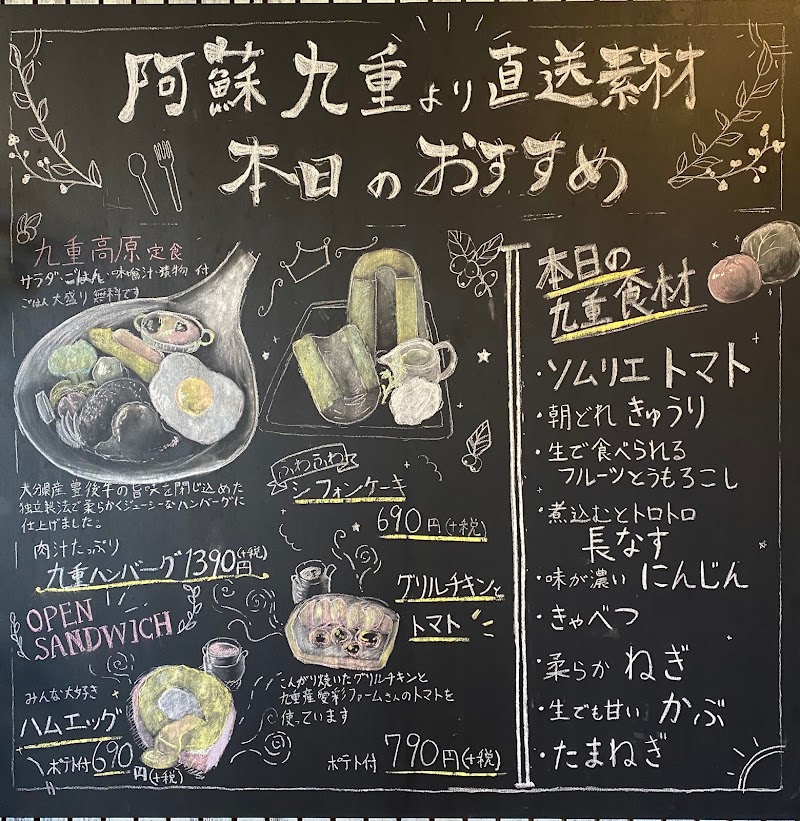 阿蘇 九重より直送素材
本日のおすすめ
九重高原定食
サラダ・ごはん・味噌汁・漬物 付
ごはん大盛り無料です
大分県産豊後牛の旨味を閉じ込めた
独立製法で柔らかくジューシーなハンバーグに
仕上げました。
肉汁たっぷり
九重ハンバーグ1390円(+税)
ふわふわ
シフォンケーキ
690円(+税)
OPEN
SANDWICH
みんな大好き
ハムエッグ
ポテト付690円(+税)
グリルチキンと
トマト
こんがり焼いたグリルチキンと
九重産愛彩ファームさんのトマトを
使っています
ポテト付 790円(+税)
本日の
九重食材
・ソムリエトマト
・朝どれきゅうり
・生で食べられる
フルーツとうもろこし
・煮込むとトロトロ
長なす
・味が濃いにんじん
・きゃべつ
・柔らかねぎ
・生でも甘いかぶ
・たまねぎ